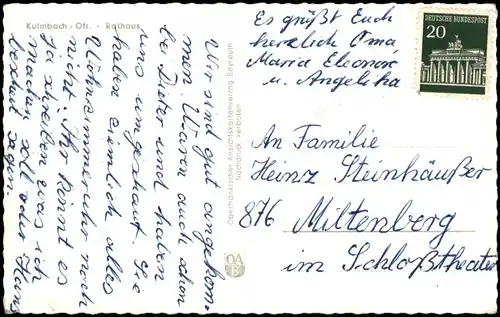 Kulmbach, Ofr. - Rathaus
Wir sind gut angekom-
men. Waren auch schon
bei Dieter und haben
uns umgeschaut. Sie
haben ziemlich alles
Wohnzimmer noch
nicht. Ihr könnt es
ja schreiben was ich
machen soll oder Hans
sagen.
Oberfränkischer Ansichtskartenverlag Bayreuth
Nachdruck verboten
Es grüßt Euch
herzlich Oma
Maria Eleonore
u. Angelika
DEUTSCHE BUNDESPOST
20
An Familie
Heinz Steinhäußer
876 Miltenberg
im Schloßtheater
OAB